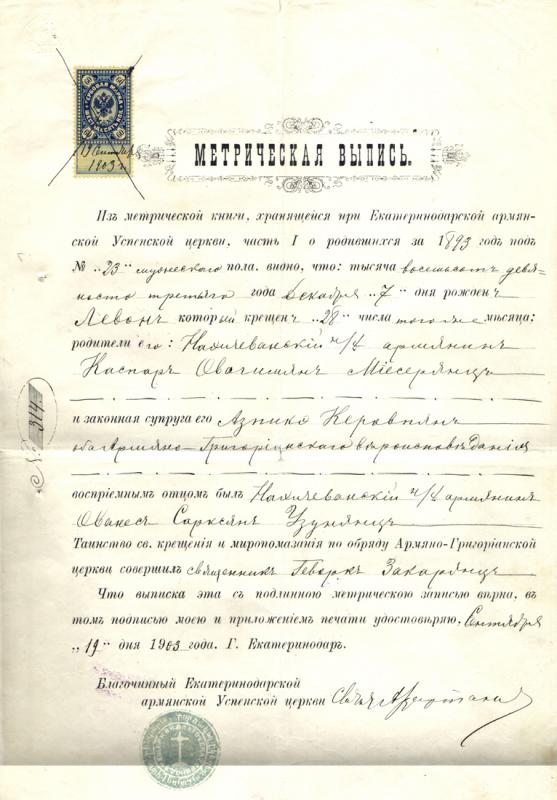 60 60
ГЕРБОВАЯ МАРКА
60 60
19 Сентября
1903 г.
МЕТРИЧЕСКАЯ ВЫПИСЬ.
Изъ метрической книги, хранящейся при Екатеринодарской армян-
ской Успенской церкви, часть I о родившихся за 1893 годъ подъ
№ „23" мужескаго пола, видно, что: тысяча восемьсотъ девя-
носто третьяго года Декабря „7" дня рожденъ
Левонъ который крещенъ „28" числа того-же мѣсяца;
родители его: Нахичеванскій армянинъ
Каспаръ Місерянцъ
и законная супруга его
оба Армяно-Григоріанскаго вѣроисповѣданія
воспріемнымъ отцомъ былъ Нахичеванскій армянинъ
Ованесъ Сарксянъ Узунянцъ
Таинство св. крещенія и миропомазанія по обряду Армяно-Григоріанской
церкви совершилъ священникъ Геворкъ Закарянцъ
Что выписка эта съ подлинною метрическою записью вѣрна, въ
томъ подписью моею и приложеніемъ печати удостовѣряю, Сентября
„19" дня 1903 года. Г. Екатеринодаръ.
Благочинный Екатеринодарской
армянской Успенской церкви
№ 314